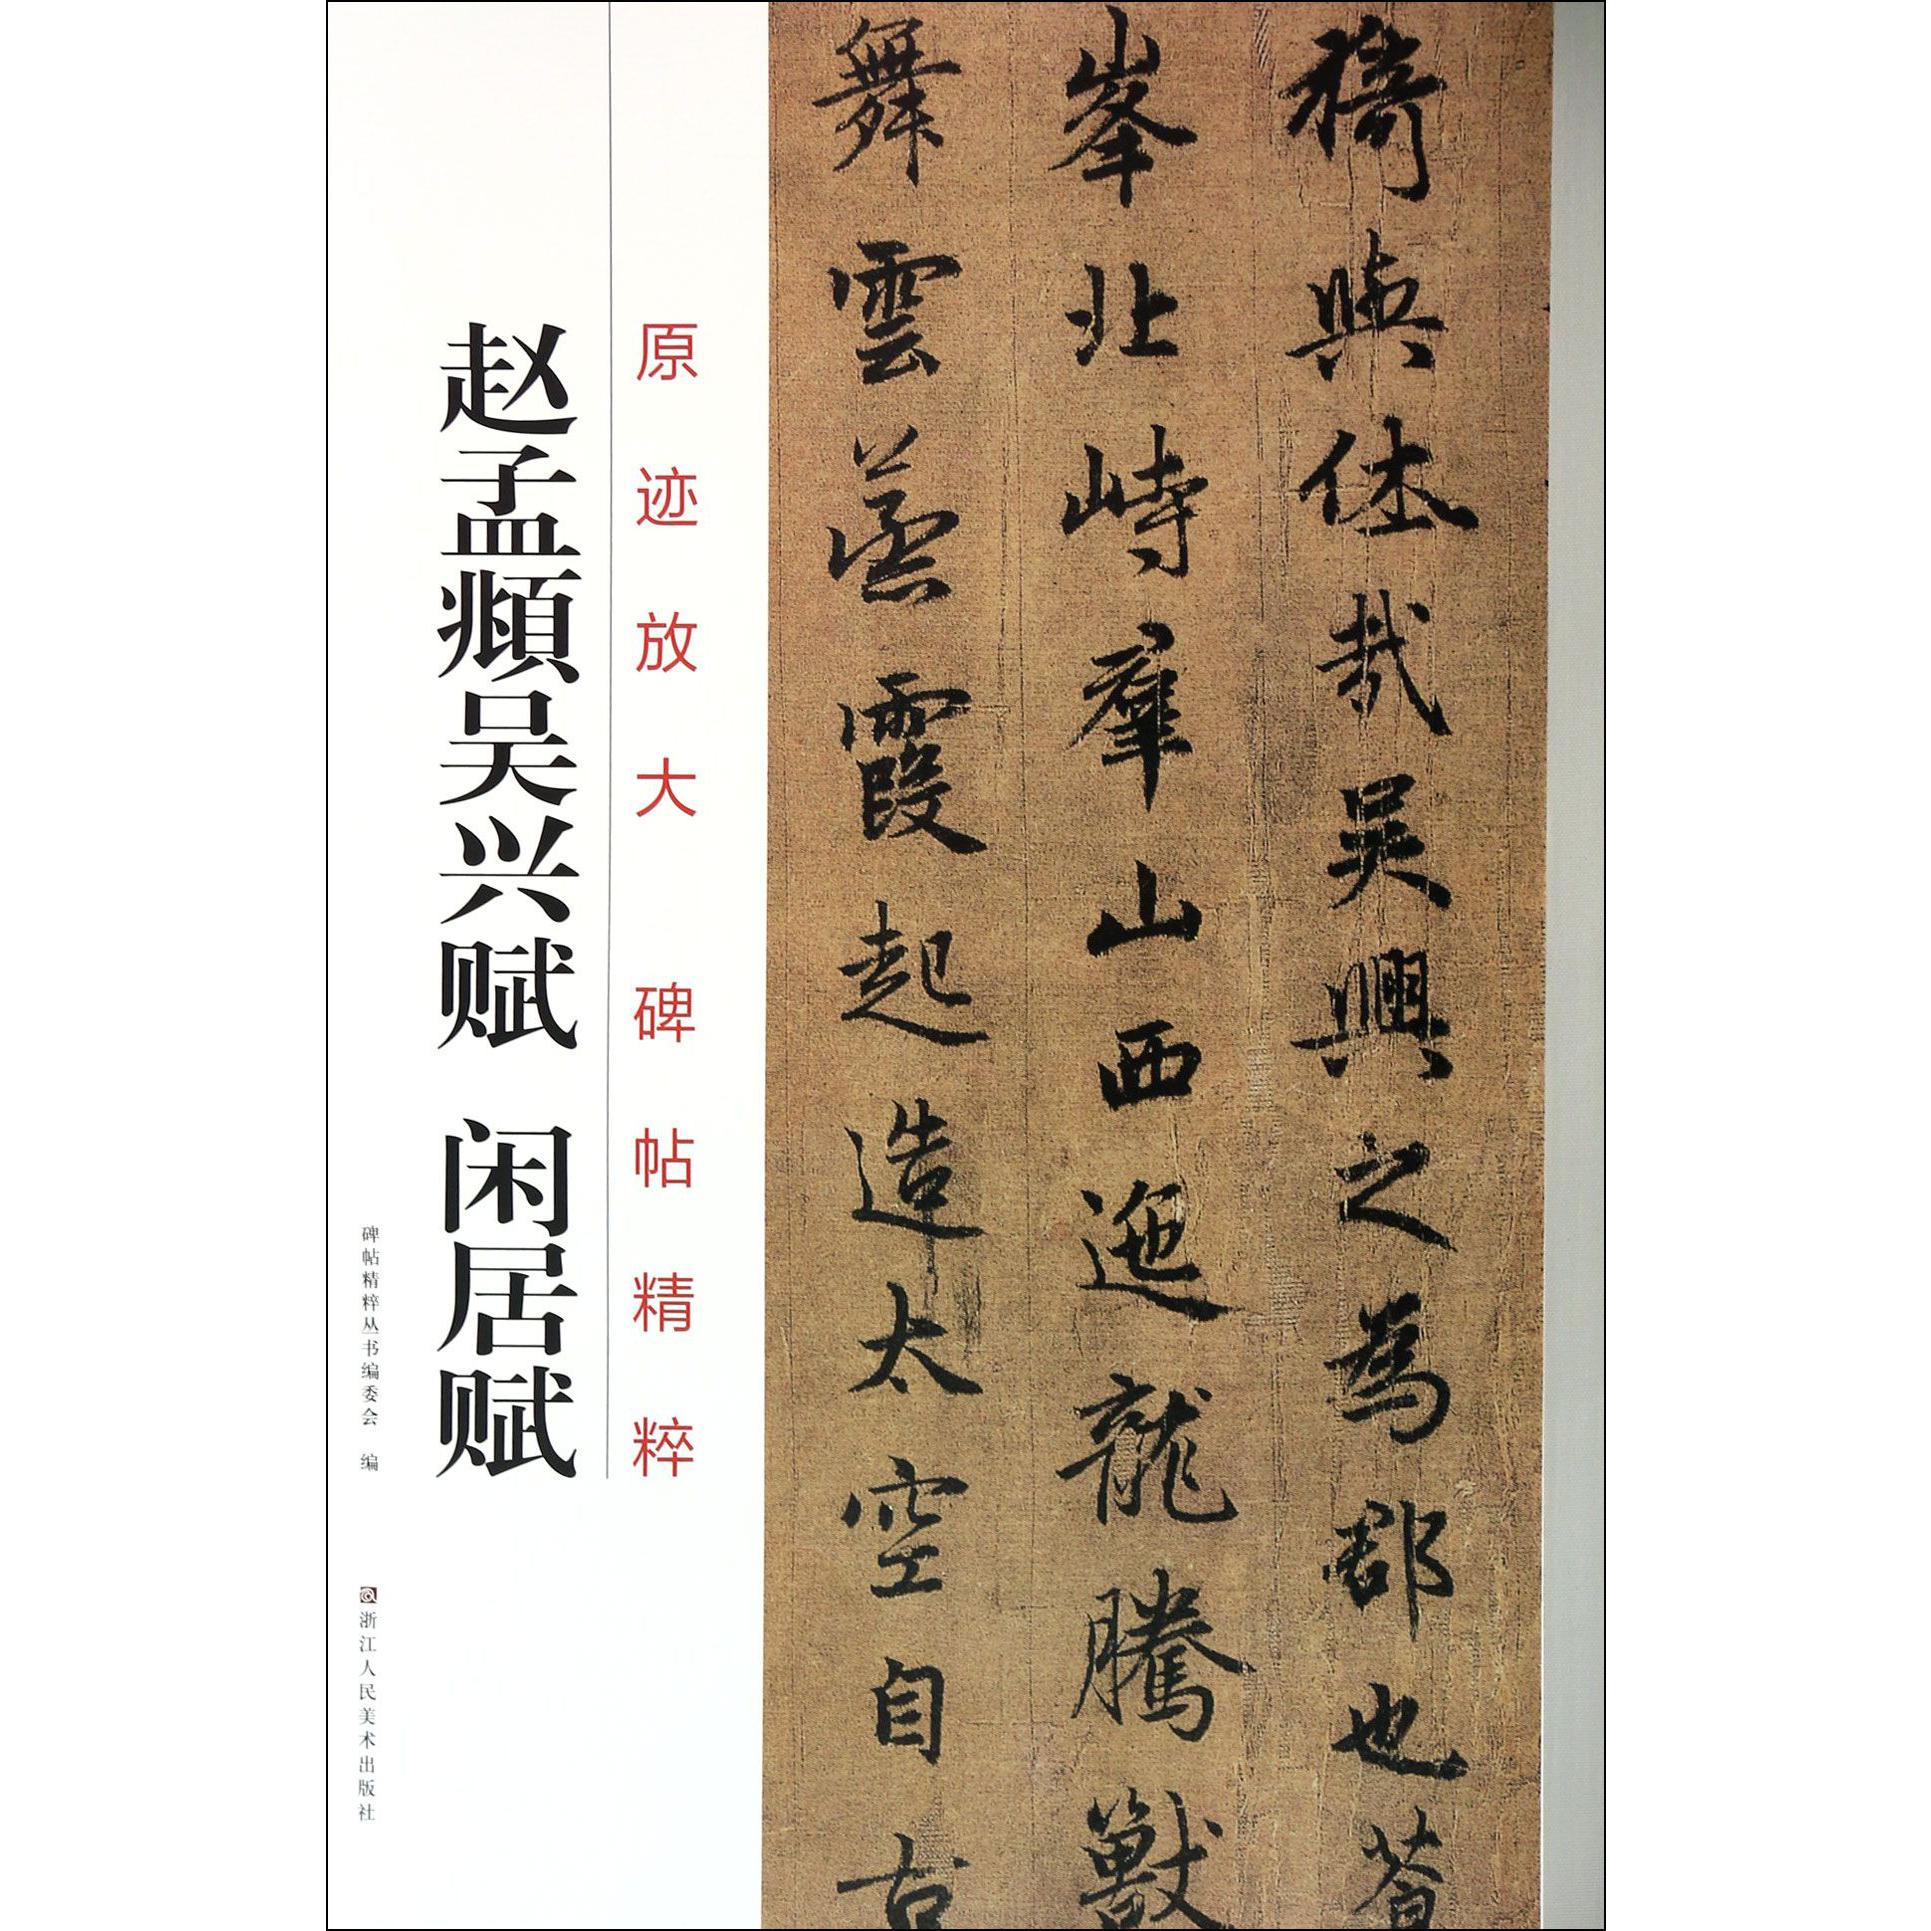 猗與休哉吴興之為郡也蒼
峯北峙羣山西迤龍騰獸
舞雲蒸霞起造太空自古
原迹放大 碑帖精粹
赵孟頫吴兴赋 闲居赋
碑帖精粹丛书编委会 编
浙江人民美术出版社